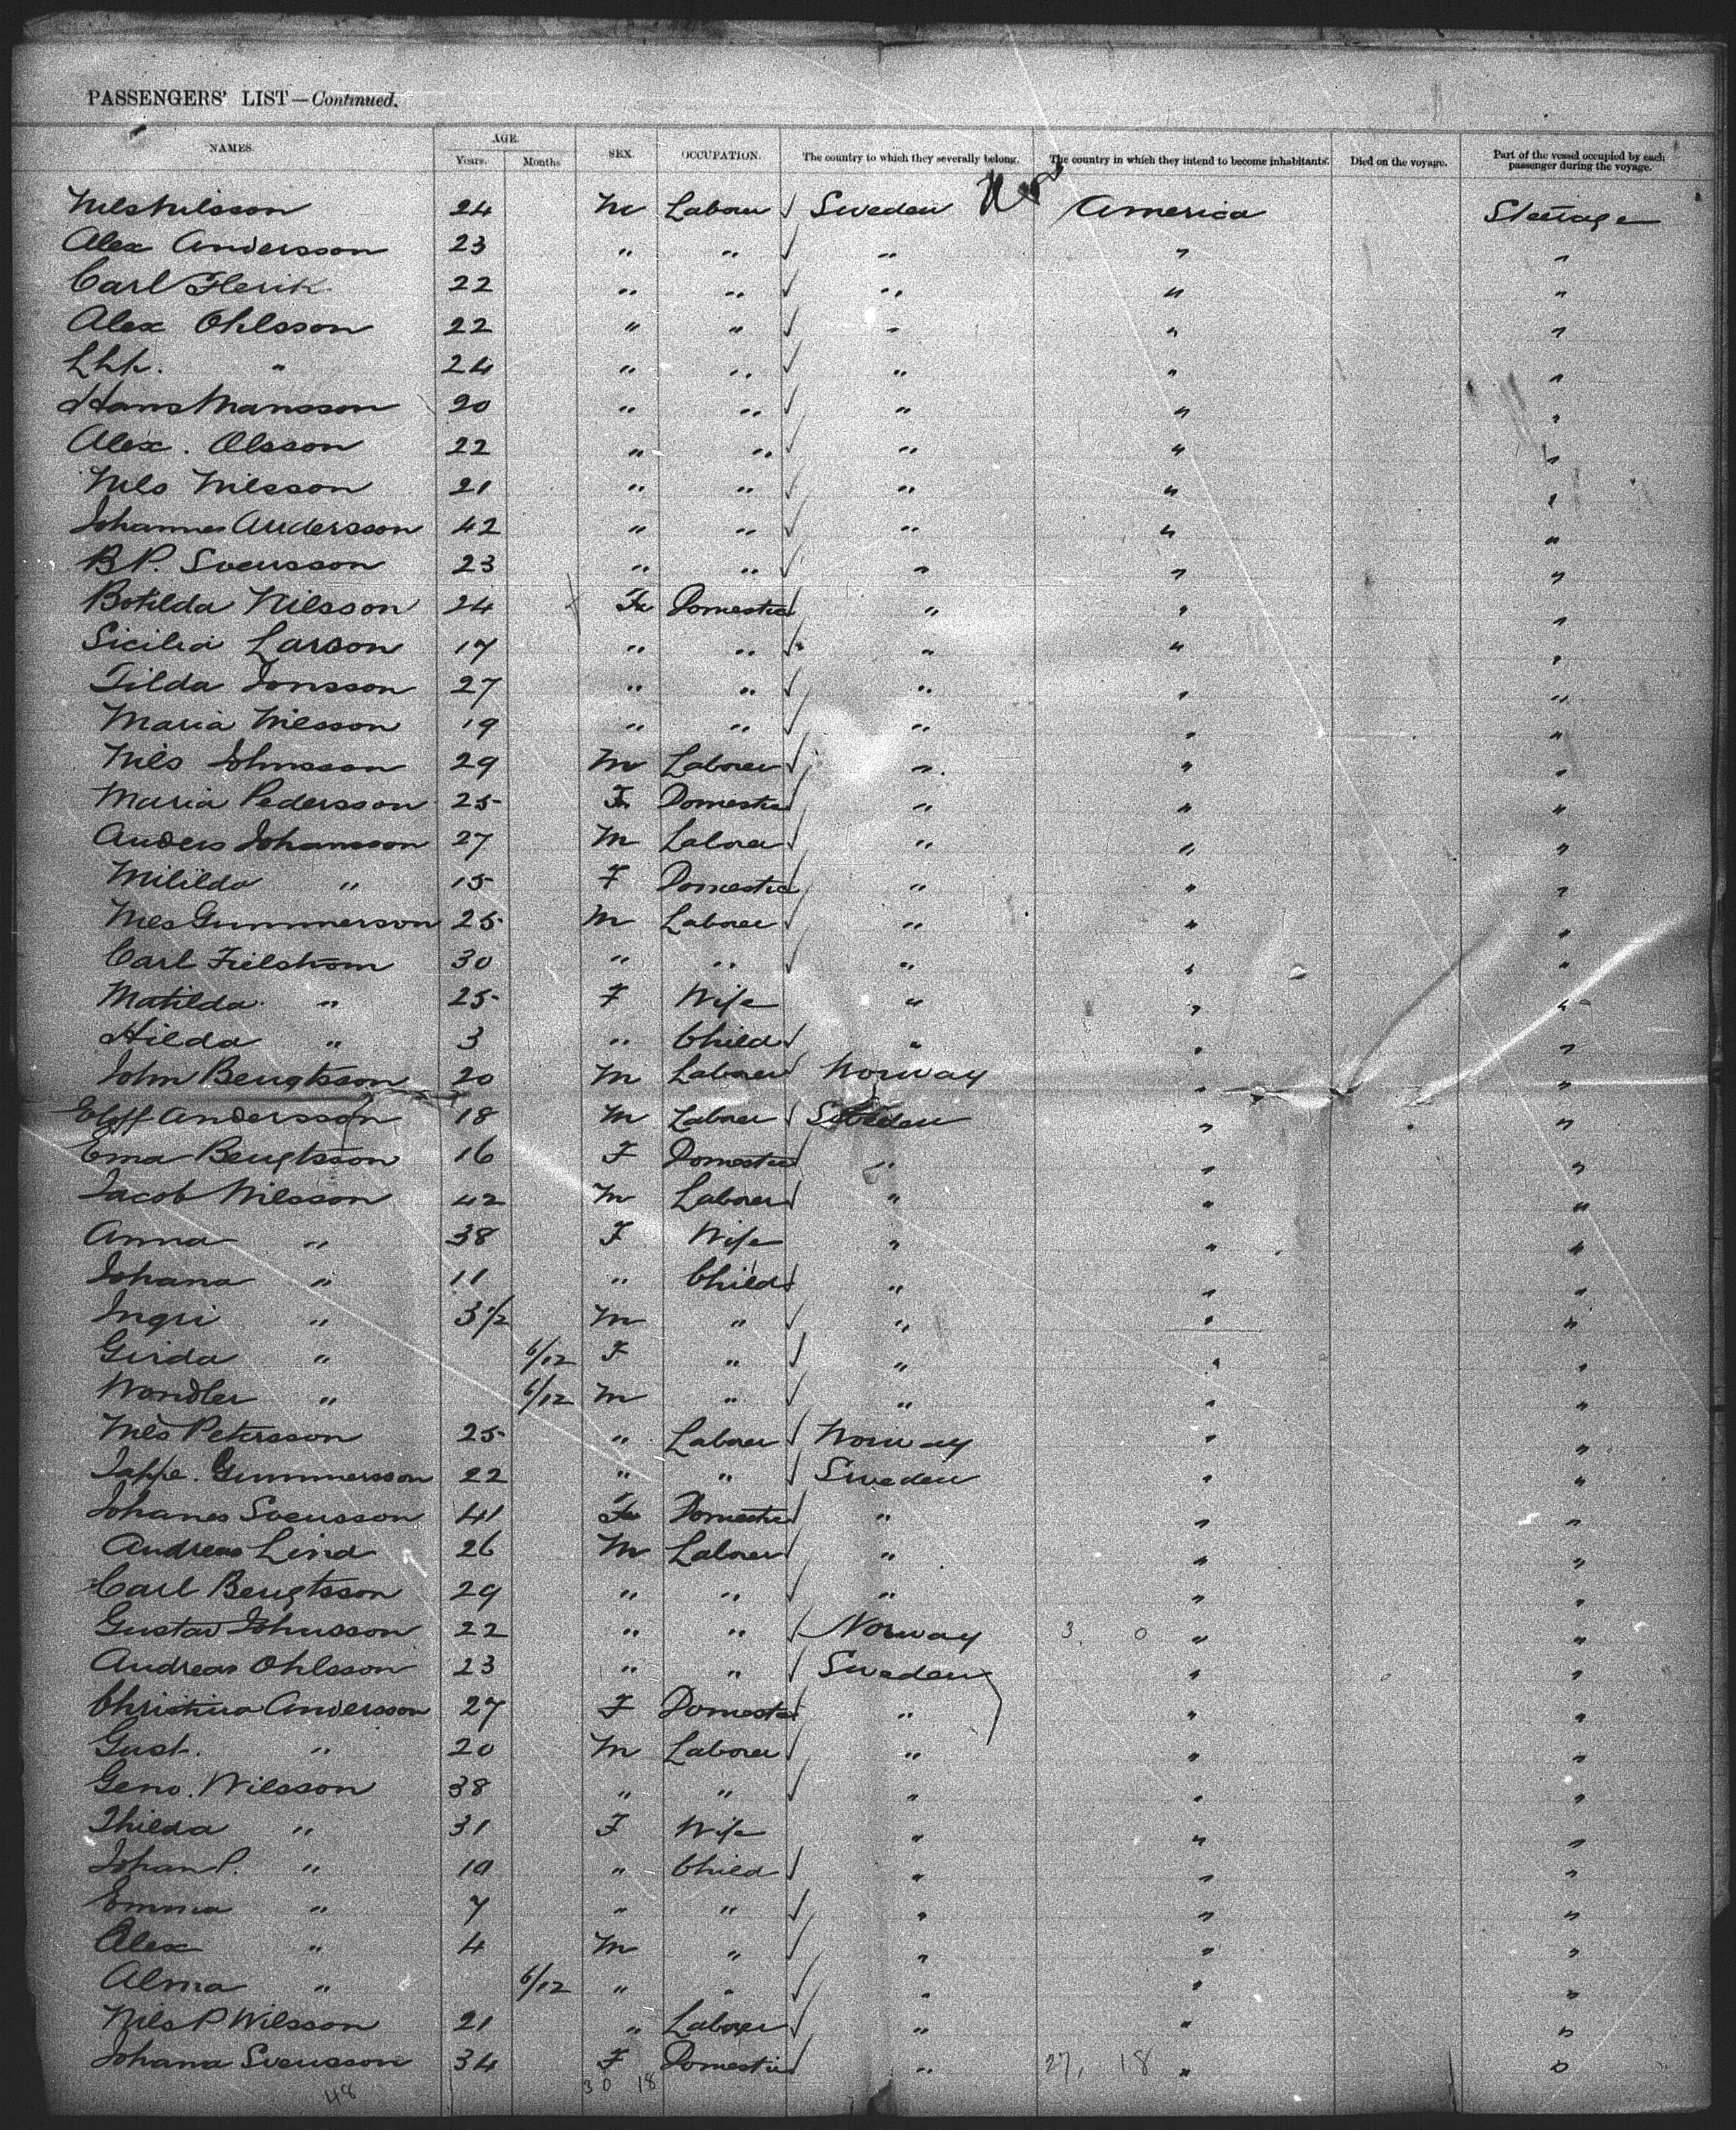 PASSENGERS' LIST—Continued.
NAMES. AGE. Years. Months SEX. OCCUPATION. The country to which they severally belong. The country in which they intend to become inhabitants. Died on the voyage. Part of the vessel occupied by each passenger during the voyage.
Nils Nilsson 24 M Labour Sweden America Steerage
Alex Andersson 23 " " " " "
Carl 22 " " " " "
Alex Ohlsson 22 " " " " "
" 24 " " " " "
Hans Mansson 20 " " " " "
Alex. Olsson 22 " " " " "
Nils Nilsson 21 " " " " "
Johannes Andersson 42 " " " " "
B P. Svensson 23 " " " " "
Botilda Nilsson 24 Fe Domestic " " "
Sicilia Larson 17 " " " " "
Tilda Jonsson 27 " " " " "
Maria Nilsson 19 " " " " "
Nils Johnsson 29 M Laborer " " "
Maria Pedersson 25 Fe Domestic " " "
Anders Johansson 27 M Laborer " " "
Mililda " 15 F Domestic " " "
Nils Gummerson 25 M Laborer " " "
Carl Fielstrom 30 " " " " "
Matilda " 25 F Wife " " "
Hilda " 3 " Child " " "
John Bengtsson 20 M Laborer Norway " "
Andersson 18 M Laborer Sweden " "
Ema Bengtsson 16 F Domestic " " "
Jacob Nilsson 42 M Laborer " " "
Anna " 38 F Wife " " "
Johana " 11 " Child " " "
Ingri " 3 1/2 M " " " "
Girda " 6/12 F " " " "
Wandler " 6/12 M " " " "
Nils Petersson 25 " Laborer Norway " "
Jappe. Gummersson 22 " " Sweden " "
Johanes Svensson 41 Fe Domestic " " "
Andreas Lind 26 M Laborer " " "
Carl Bengtsson 29 " " " " "
Gustav Johnsson 22 " " Norway 3. 0 " "
Andreas Ohlsson 23 " " Sweden " "
Christina Andersson 27 F Domestic " " "
Gust. " 20 M Laborer " " "
Geno. Nilsson 38 " " " " "
Thilda " 31 F Wife " " "
Johan P. " 10 " Child " " "
Emma " 7 " " " " "
Alex " 4 M " " " "
Alma " 6/12 " " " " "
Nils P Nilsson 21 " Laborer " " "
Johana Svensson 34 F Domestic " 27, 18 " "
48 30 18